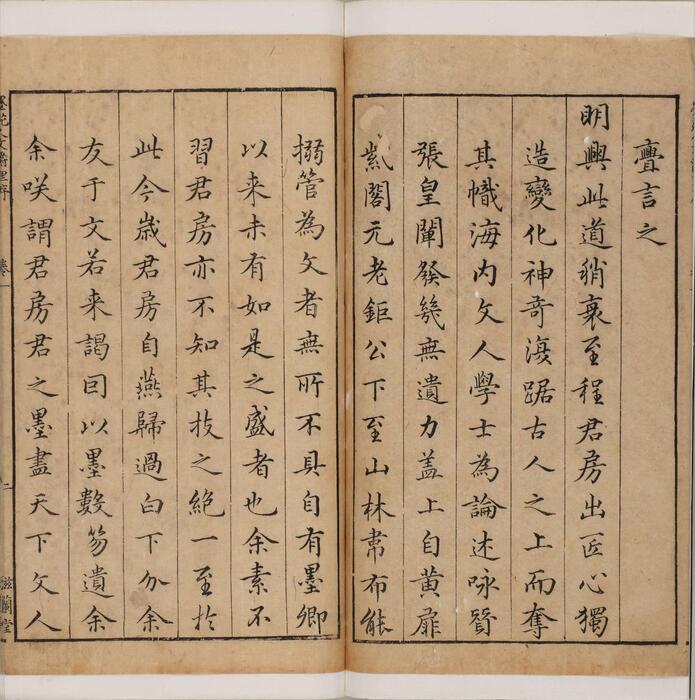 亹言之
明興此道稍衰至程君房出匠心獨
造變化神奇澓踞古人之上而奪
其幟海内文人學士為論述咏贊
張皇闡發幾無遺力盖上自黄扉
紫閣元老鉅公下至山林韋布能
搦管為文者無所不具自有墨卿
以来未有如是之盛者也余素不
習君房亦不知其技之絕一至於
此今歲君房自燕歸過白下介余
友于文若来謁回以墨數笏遺余
余咲謂君房君之墨盡天下文人
卷一
二
滋蘭堂